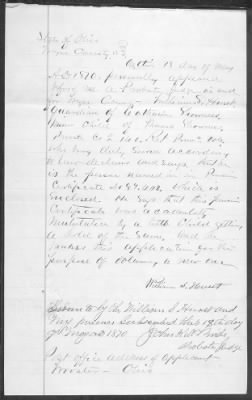 State of Ohio
Wayne County SS
On this 18 day of May
A.D 1870, personally appeared
before me a Probate Judge in and
for Wayne County William S. Hurst
Guardian of
minor child of Thomas
who being duly sworn according
to law declares and says that he
is the person named in Pension
Certificate No which is
enclosed. He says that this pension
Certificate was accidently
mutilated by a little child getting
a hold of the same, and that
makes this application for the
purpose of obtaining a new one
William S. Hurst
Sworn to by the William S Hurst and
in my presence Subscribed this 18th day
of May AD 1870
Probate Judge
Post office address of Applicant
Wooster Ohio